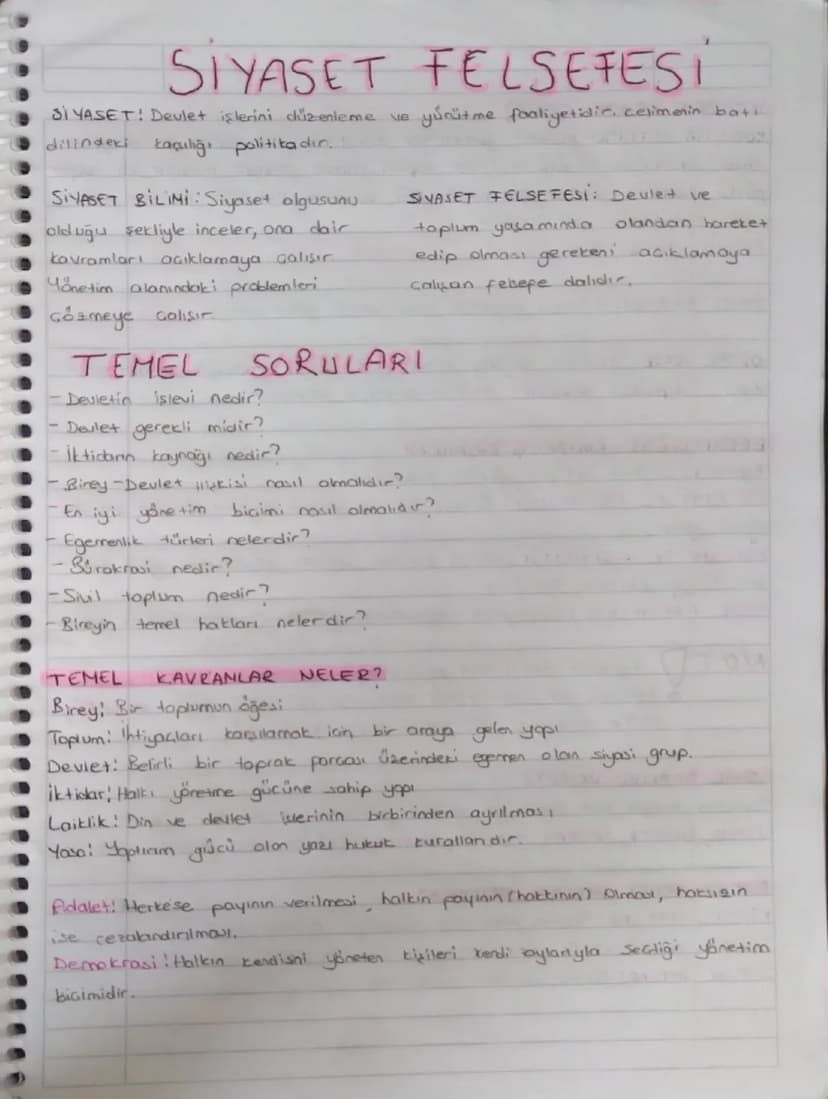 SİYASET FELSEFESİ
SİYASET: Devlet işlerini düzenleme ve yürütme faaliyetidir. celimenin batı
dilindeki karşılığı politikadır.
SİYASET BİLİMİ: Siyaset olgusunu
olduğu şekliyle inceler, ona dair
kavramları açıklamaya çalışır
Yönetim alanındaki problemleri
çözmeye çalışır
SİYASET FELSEFESİ: Devlet ve
toplum yaşamında olandan hareket
edip olması gerekeni açıklamaya
çalışan felsefe dalıdır.
TEMEL SORULARI
- Devletin işlevi nedir?
- Devlet gerekli midir?
- İktidarın kaynağı nedir?
- Birey-Devlet ilişkisi nasıl olmalıdır?
- En iyi yönetim biçimi nasıl olmalıdır?
- Egemenlik türleri nelerdir?
- Bürokrasi nedir?
- Sivil toplum nedir?
- Bireyin temel hakları nelerdir?
TEMEL KAVRAMLAR NELER?
Birey: Bir toplumun öğesi
Toplum: İhtiyaçları karşılamak için bir araya gelen yapı
Devlet: Belirli bir toprak parçası üzerindeki egemen olan siyasi grup.
İktidar: Halkı yönetme gücüne sahip yapı
Laiklik: Din ve devlet işlerinin birbirinden ayrılması
Yasa: Yaptırım gücü olan yazı hukuk kurallarıdır.
Adalet: Herkese payının verilmesi, halkın payının (hakkının) olması, haksızın
ise cezalandırılması.
Demokrasi: Halkın kendisni yöneten kişileri kendi oylarıyla seçtiği yönetim
biçimidir.